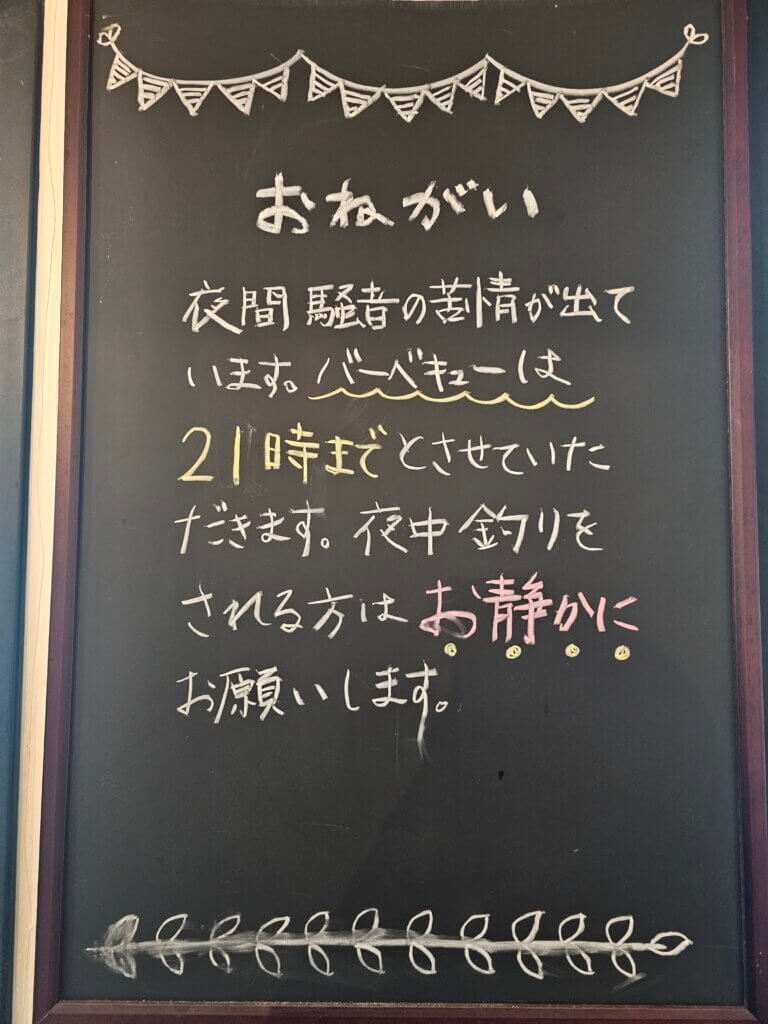 おねがい
夜間 騒音の苦情が出て
います。バーベキューは
21時までとさせていた
だきます。夜中 釣りを
される方は お静かに
お願いします。